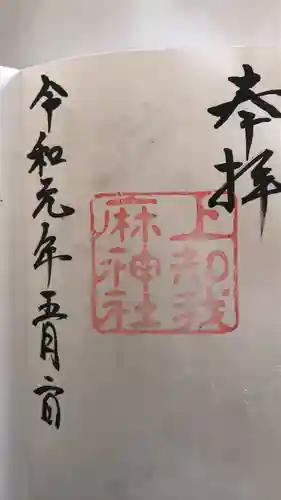 奉拝
上知我
麻神社
令和元年五月二日